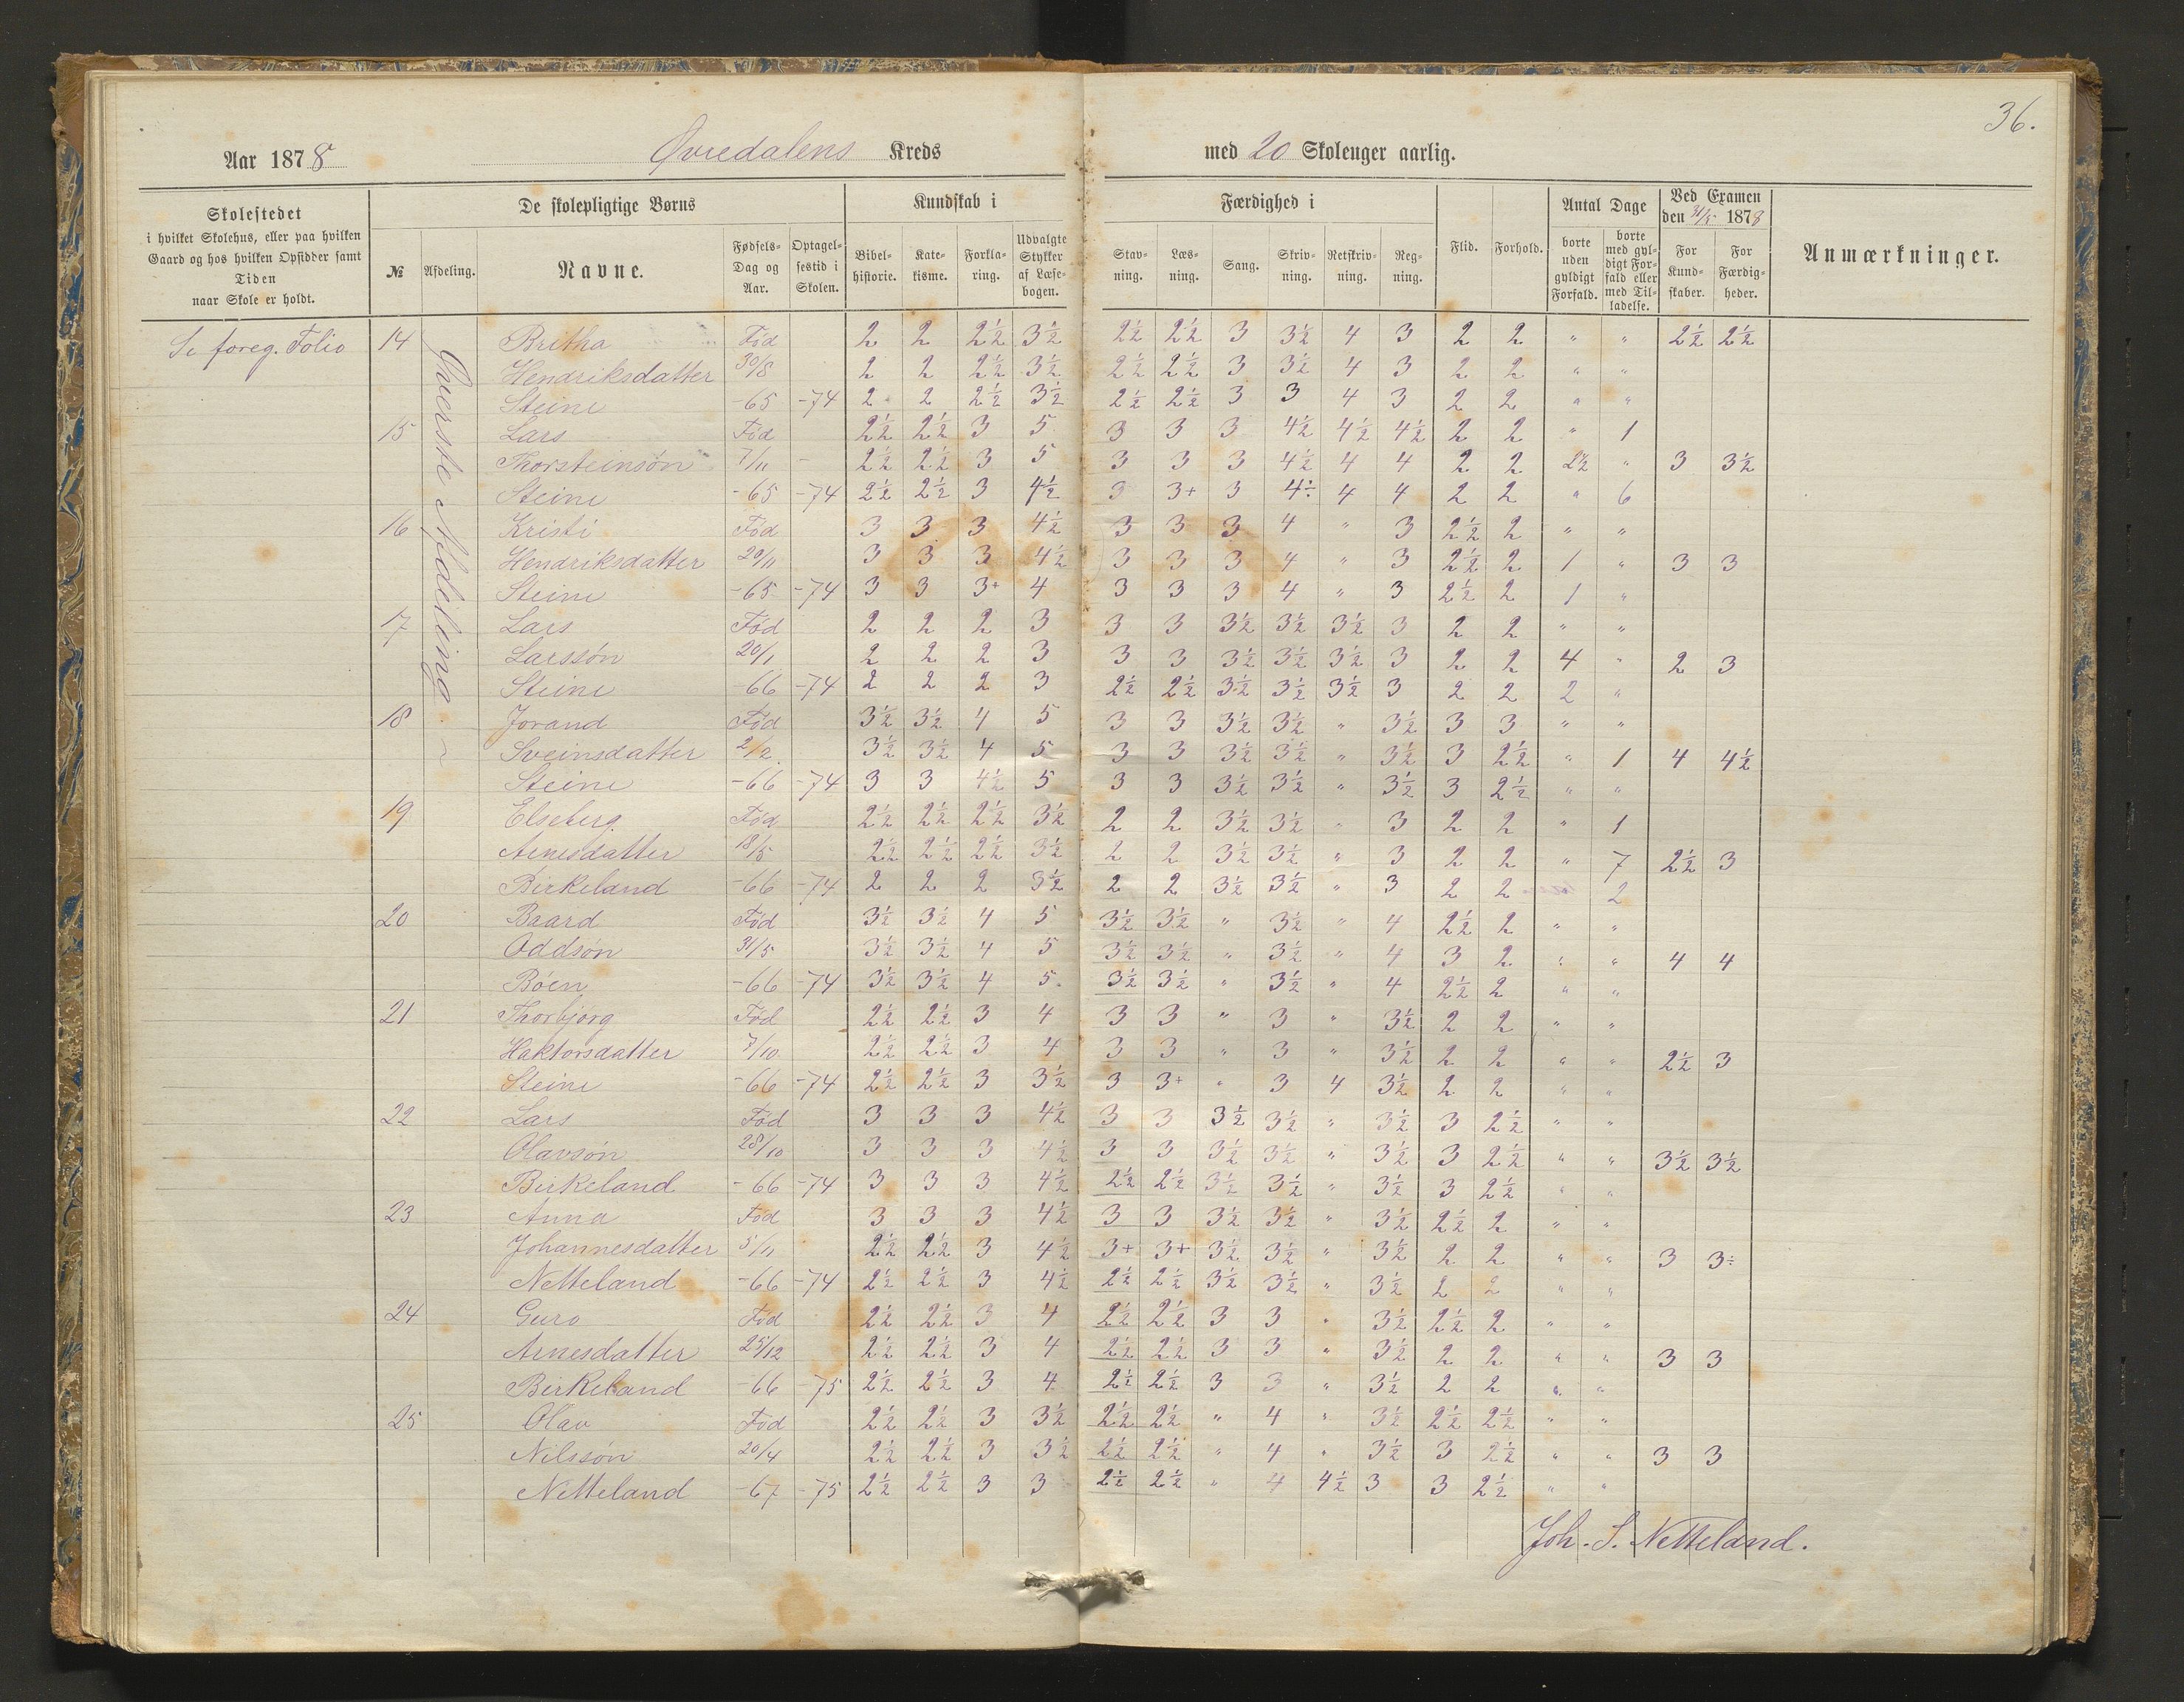 36.
Aar 1878 Øvredalens Kreds med 20 Skoleuger aarlig.
Skolestedet i hvilket Skolehus, eller paa hvilken Gaard og hos hvilken Opsidder samt Tiden naar Skole er holdt.
De skolepligtige Børns
№ Afdeling. Navne. Fødsels-Dag og Aar. Optagelsestid i Skolen.
Kundskab i
Bibelhistorie. Katekisme. Forklaring. Udvalgte Stykker af Læsebogen.
Færdighed i
Stavning. Læsning. Sang. Skrivning. Retskrivning. Regning.
Flid. Forhold.
Antal Dage
borte uden gyldigt Forfald. borte med gyldigt Forfald eller med Tilladelse.
Ved Examen den 31/5 1878
For Kundskaber. For Færdigheder.
Anmærkninger.
Øverste Afdeling
Se foreg. Folio 14 Britha Fød 2 2 2½ 3½ 2½ 2½ 3 3½ 4 3 2 2 " " 2½ 2½
Hendriksdatter 30/8 2 2 2½ 3½ 2½ 2½ 3 3½ 4 3 2 2 " "
Steine -65 -74 2 2 2½ 3½ 2½ 2½ 3 3 4 3 2 2 " "
15 Lars Fød 2½ 2½ 3 5 3 3 3 4½ 4½ 4½ 2 2 " 1
Thorsteinsøn 7/11 - 2½ 2½ 3 5 3 3 3 4½ 4 4 2 2 2½ " 3 3½
Steine -65 -74 2½ 2½ 3 4½ 3 3+ 3 4÷ 4 4 2 2 " 6
16 Kristi Fød 3 3 3 4½ 3 3 3 4 " 3 2½ 2 " "
Hendriksdatter 20/11 3 3 3 4½ 3 3 3 4 " 3 2½ 2 1 " 3 3
Steine -65 -74 3 3 3+ 4 3 3 3 4 " 3 2½ 2 1 "
17 Lars Fød 2 2 2 3 3 3 3½ 3½ 3½ 3 2 2 " "
Larssøn 20/1 2 2 2 3 3 3 3½ 3½ 3½ 3 2 2 4 " 2 3
Steine -66 -74 2 2 2 3 2½ 2½ 3½ 3½ 3½ 3 2 2 2 "
18 Jorand Fød 3½ 3½ 4 5 3 3 3½ 3½ " 3½ 3 3 " "
Sveinsdatter 2/2 3½ 3½ 4 5 3 3 3½ 3½ " 3½ 3 2½ " 1 4 4½
Steine -66 -74 3 3 4½ 5 3 3 3½ 3½ " 3½ 3 2½ " "
19 Elseberg Fød 2½ 2½ 2½ 3½ 2 2 3½ 3½ " 3 2 2 " 1
Arnesdatter 18/5 2½ 2½ 2½ 3½ 2 2 3½ 3½ " 3 2 2 " 7 2½ 3
Birkeland -66 -74 2 2 2 3½ 2 2 3½ 3½ " 3 2 2 2
20 Baard Fød 3½ 3½ 4 5 3½ 3½ " 3½ " 4 2½ 2 " "
Oddsøn 31/5 3½ 3½ 4 5 3½ 3½ " 3½ " 4 3 2 " " 4 4
Bøen -66 -74 3½ 3½ 4 5 3½ 3½ " 3½ " 4 2½ 2 " "
21 Thorbjørg Fød 2½ 2½ 3 4 3 3 " 3 " 3½ 2 2 " "
Haktorsdatter 7/10 2½ 2½ 3 4 3 3 " 3 " 3½ 2 2 " " 2½ 3
Steine -66 -74 2½ 2½ 3 3½ 3 3+ " 3 4 3½ 2 2 " "
22 Lars Fød 3 3 3 4½ 3 3 3½ 3½ " 3½ 3 2½ " "
Olavsøn 28/10 3 3 3 4½ 3 3 3½ 3½ " 3½ 3 2½ " " 3½ 3½
Birkeland -66 -74 3 3 3 4½ 2½ 2½ 3½ 3½ " 3½ 3 2½ " "
23 Anna Fød 3 3 3 4½ 3 3 3½ 3½ " 3½ 2½ 2 " "
Johannesdatter 5/11 2½ 2½ 3 4½ 3+ 3+ 3½ 3½ " 3½ 2 2 " " 3 3÷
Netteland -66 -74 2½ 2½ 3 4½ 2½ 2½ 3½ 3½ " 3½ 2 2 " "
24 Guro Fød 2½ 2½ 3 4 2½ 2½ 3 3 " 3½ 2½ 2 " "
Arnesdatter 25/12 2½ 2½ 3 4 2½ 2½ 3 3 " 3½ 2 2 " " 3 3
Birkeland -66 -75 2½ 2½ 3 4 2½ 2½ 3 3 " 3½ 2 2 " "
25 Olav Fød 2½ 2½ 3 3½ 2½ 2½ " 4 " 3½ 2½ 2½ " "
Nilssøn 20/4 2½ 2½ 3 3½ 2½ 2½ " 4 " 3½ 3 2½ " " 3 3
Netteland -67 -75 2½ 2½ 3 3 2½ 2½ " 4 4½ 3 3 2½ " "
Joh. S. Netteland.